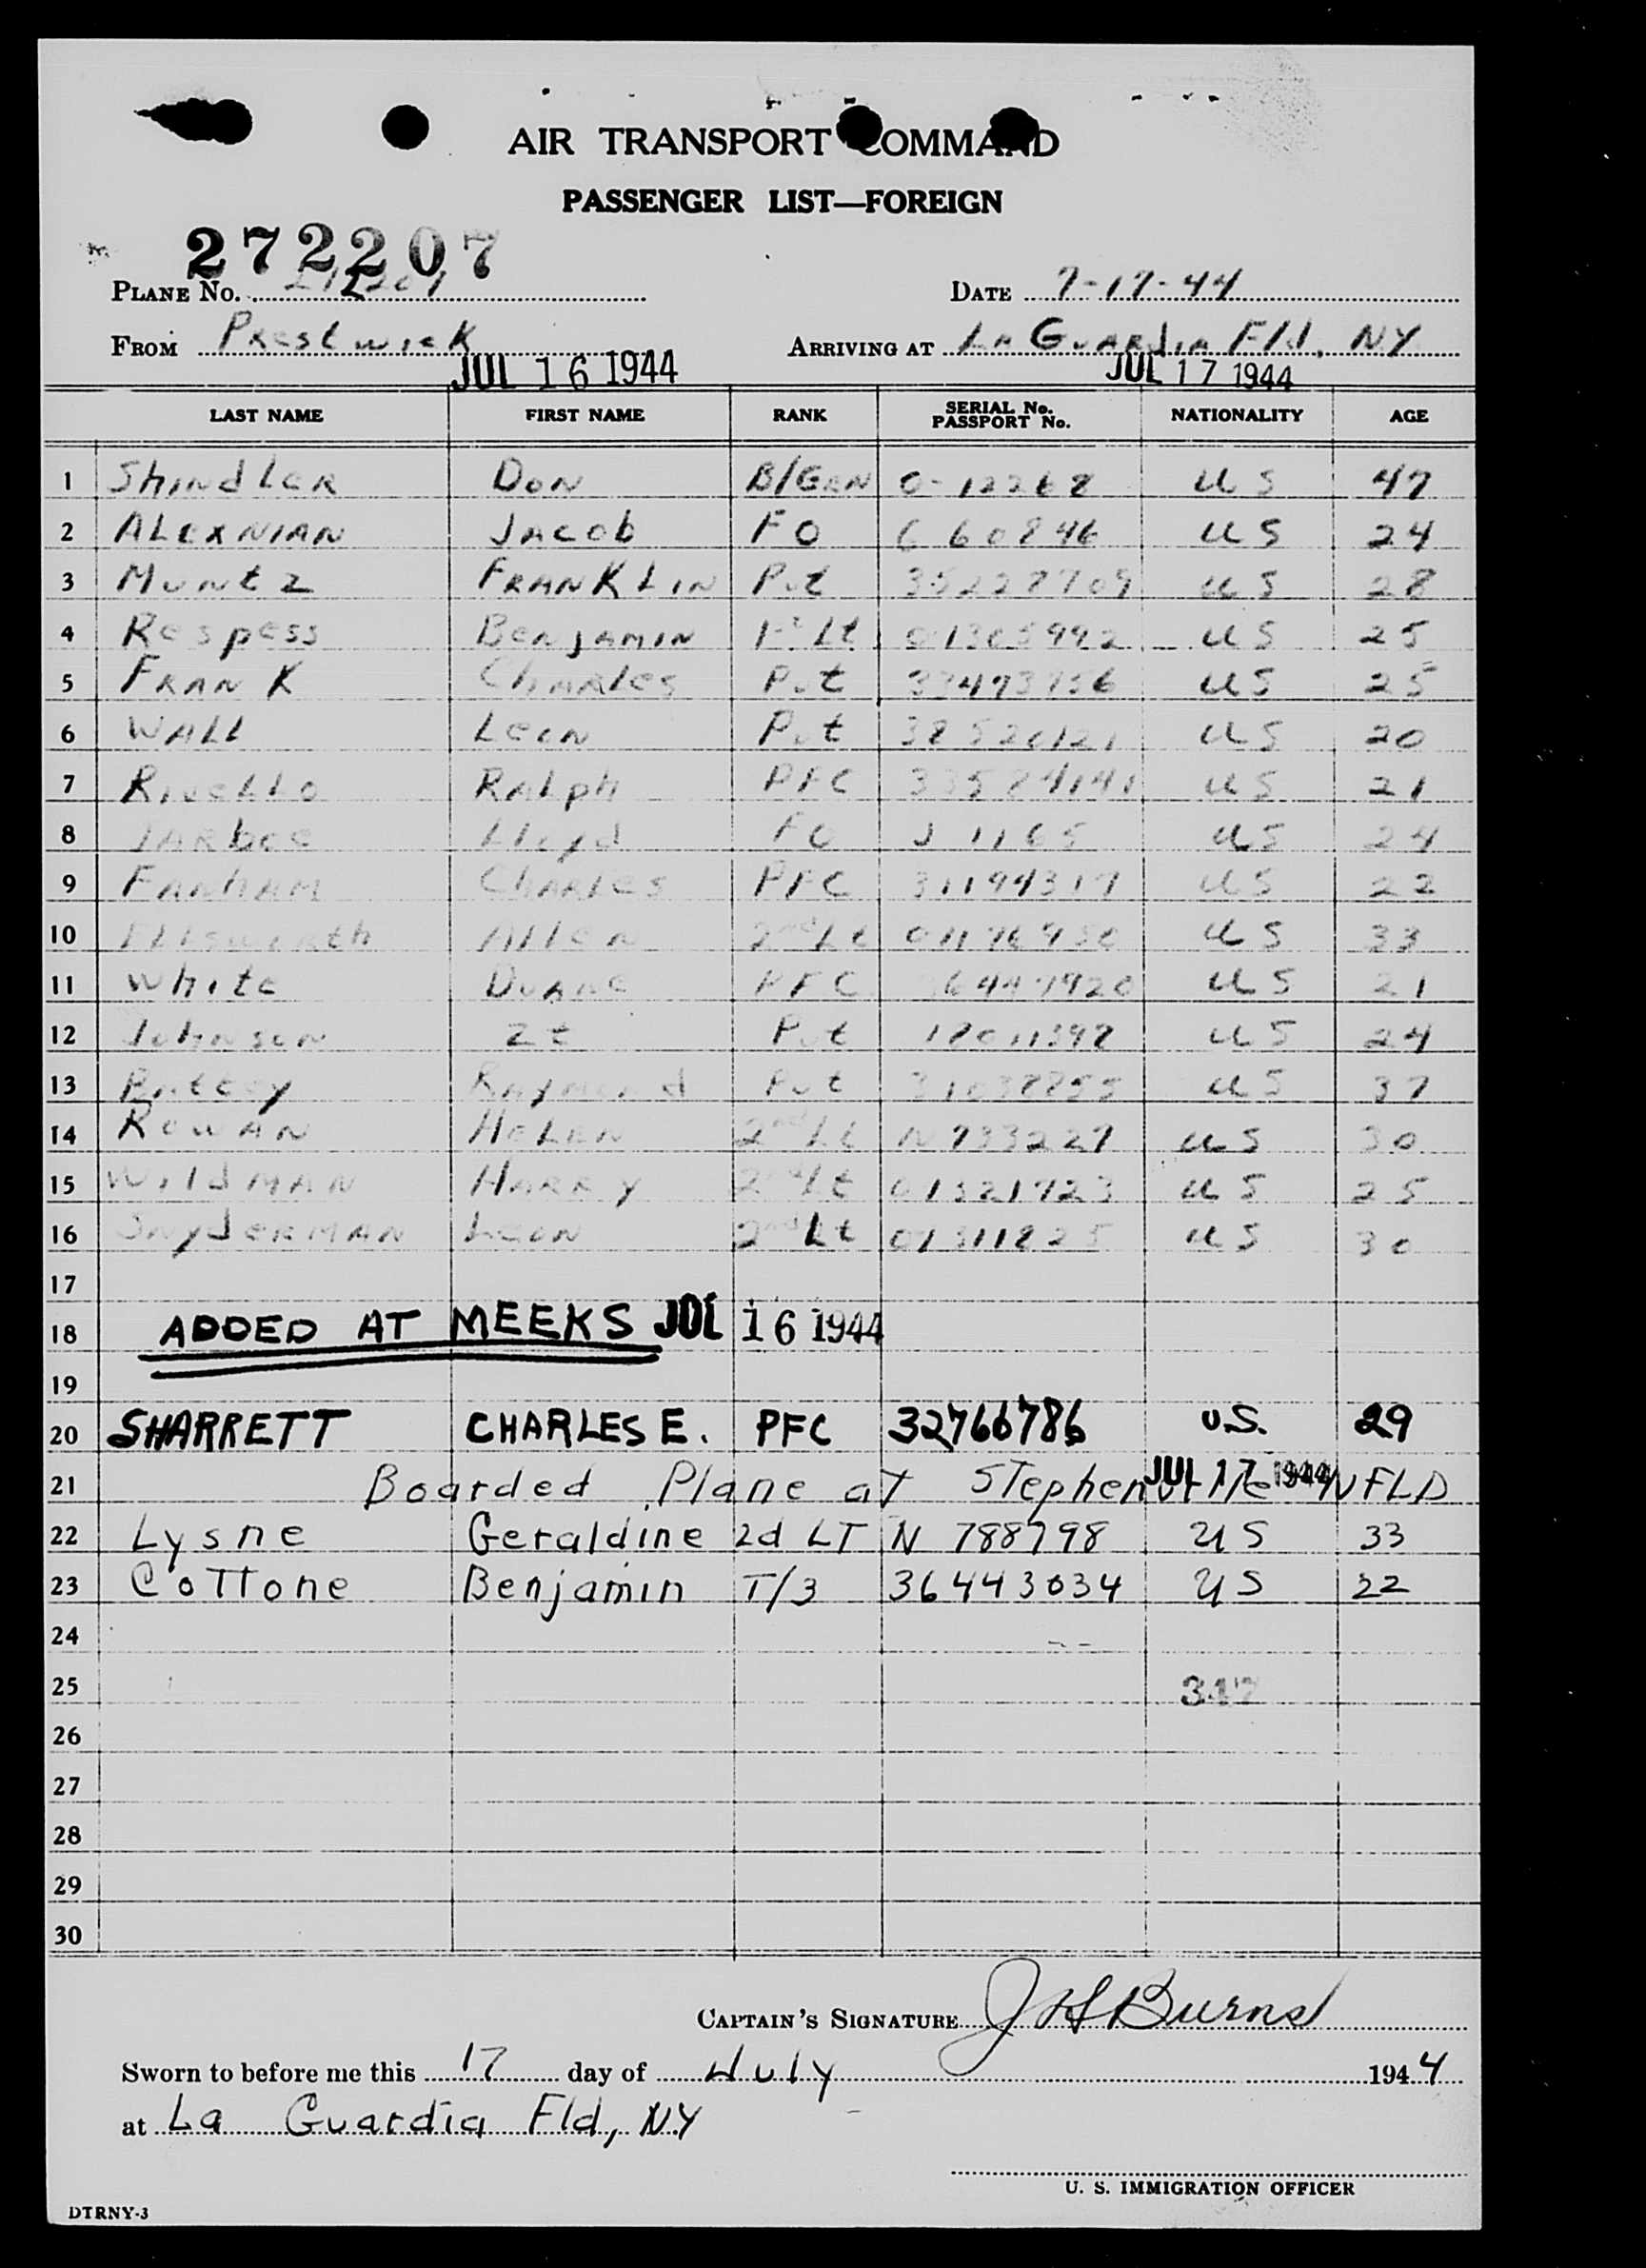 AIR TRANSPORT COMMAND
PASSENGER LIST—FOREIGN
272207
PLANE No.
DATE 7-17-44
FROM Prestwick
ARRIVING AT LA GUARDIA Fld, NY
JUL 16 1944
JUL 17 1944
LAST NAME FIRST NAME RANK SERIAL No. PASSPORT No. NATIONALITY AGE
1 ShindLER DON B/GEN O-12268 US 47
2 ALEXNIAN JACOb FO US 24
3 Muntz FRANKLIN Pvt 35228709 US 28
4 Respess BENJAMIN 1st Lt 01305992 US 25
5 FRANK CHARLES Pvt US 25
6 WALL LEON Pvt US 20
7 RIVELLO RALph PFC 33584141 US 21
8 Lloyd FO US 24
9 FANHAM CHARLES PFC 31194317 US 22
10 Ellsworth Allen 2nd Lt US 33
11 White DUANE PFC US 21
12 Johnson Zt Pvt 18011398 US 24
13 Raymond Pvt US 37
14 ROWAN HELEN 2nd Lt US 30
15 WildMAN HARRY 2nd Lt 01321723 US 25
16 SNYdERMAN LEON 2nd Lt 01311825 US 30
17
18 ADDED AT MEEKS JUL 16 1944
19
20 SHARRETT CHARLES E. PFC 32766786 U.S. 29
21 Boarded Plane at Stephenville NFLD JUL 17 1944
22 Lysne Geraldine 2d LT N 788798 US 33
23 Cottone Benjamin T/3 36443034 US 22
24
25 347
26
27
28
29
30
CAPTAIN'S SIGNATURE J H Burns
Sworn to before me this 17 day of July 1944
at La Guardia Fld, NY
U. S. IMMIGRATION OFFICER
DTRNY-3